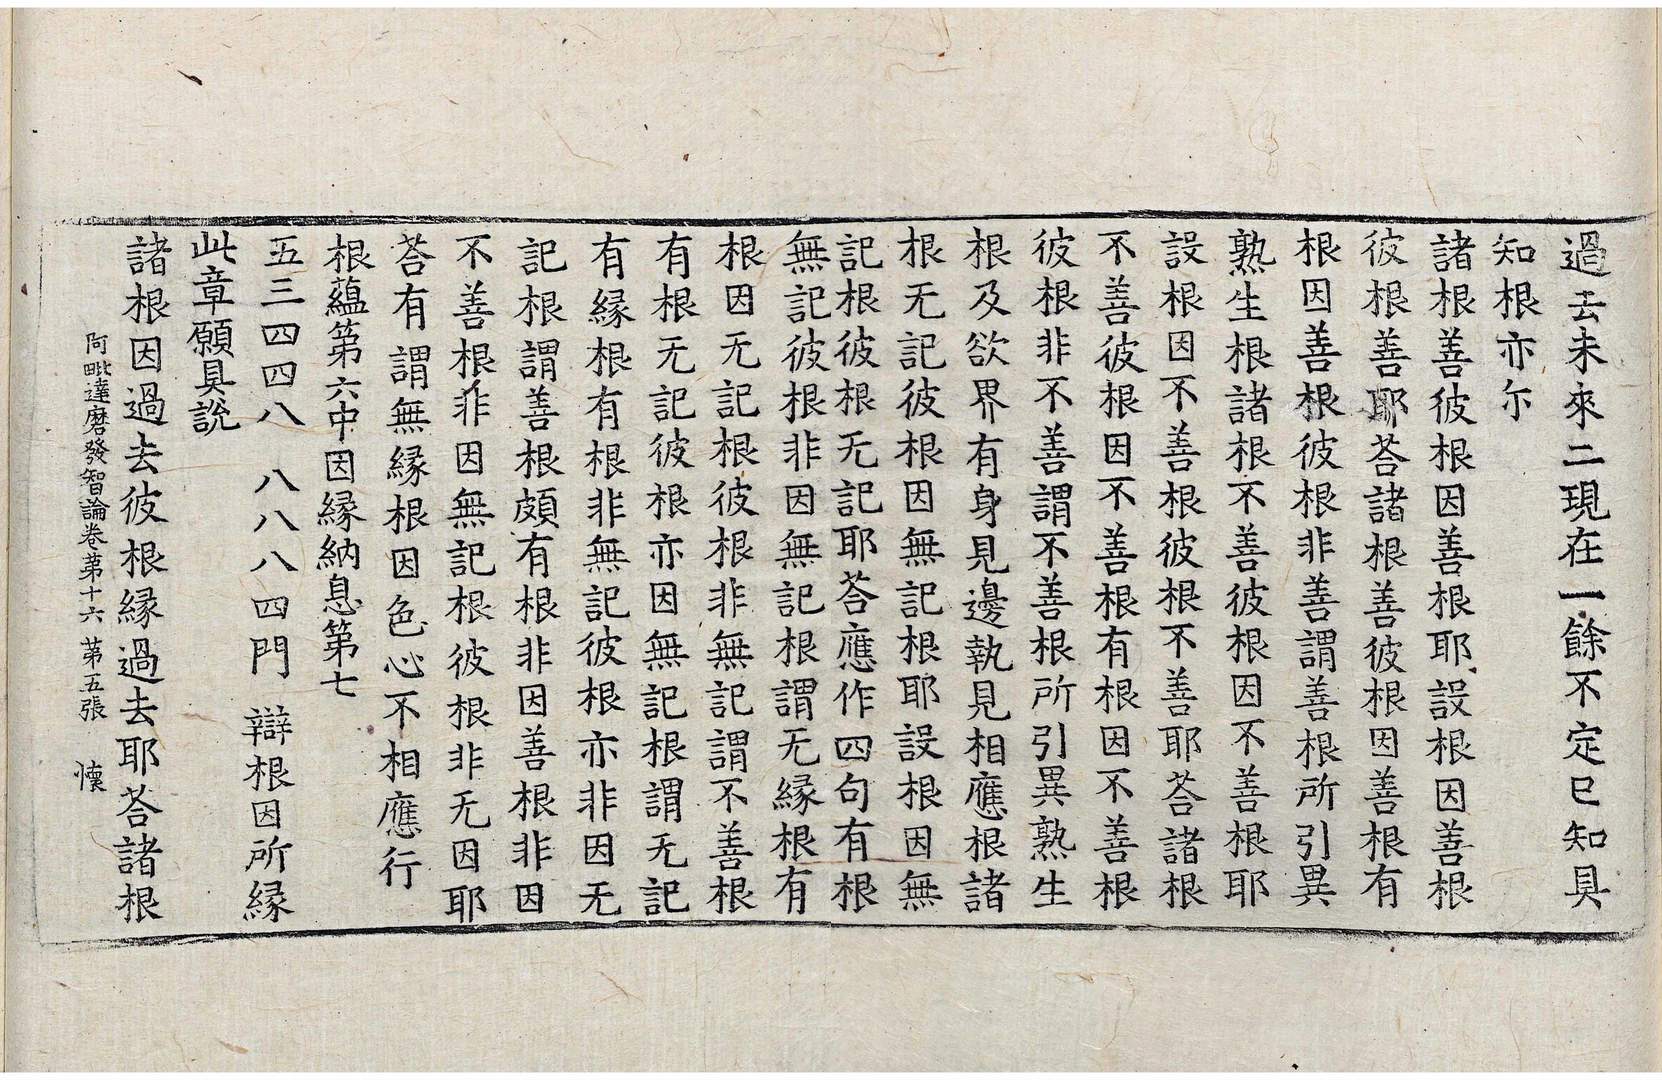 過去未來二現在一餘不定已知具
知根亦尒
諸根善彼根因善根耶設根因善根
彼根善耶荅諸根善彼根因善根有
根因善根彼根非善謂善根所引異
熟生根諸根不善彼根因不善根耶
設根因不善根彼根不善耶荅諸根
不善彼根因不善根有根因不善根
彼根非不善謂不善根所引異熟生
根及欲界有身見邊執見相應根諸
根无記彼根因無記根耶設根因無
記根彼根无記耶荅應作四句有根
無記彼根非因無記根謂无緣根有
根因无記根彼根非無記謂不善根
有根无記彼根亦因無記根謂无記
有緣根有根非無記彼根亦非因无
記根謂善根頗有根非因善根非因
不善根非因無記根彼根非无因耶
荅有謂無緣根因色心不相應行
根蘊第六中因緣納息第七
五三四四八 八八八四門 辯根因所緣
此章願具說
諸根因過去彼根緣過去耶荅諸根
阿毗達磨發智論卷第十六 第五張 懷